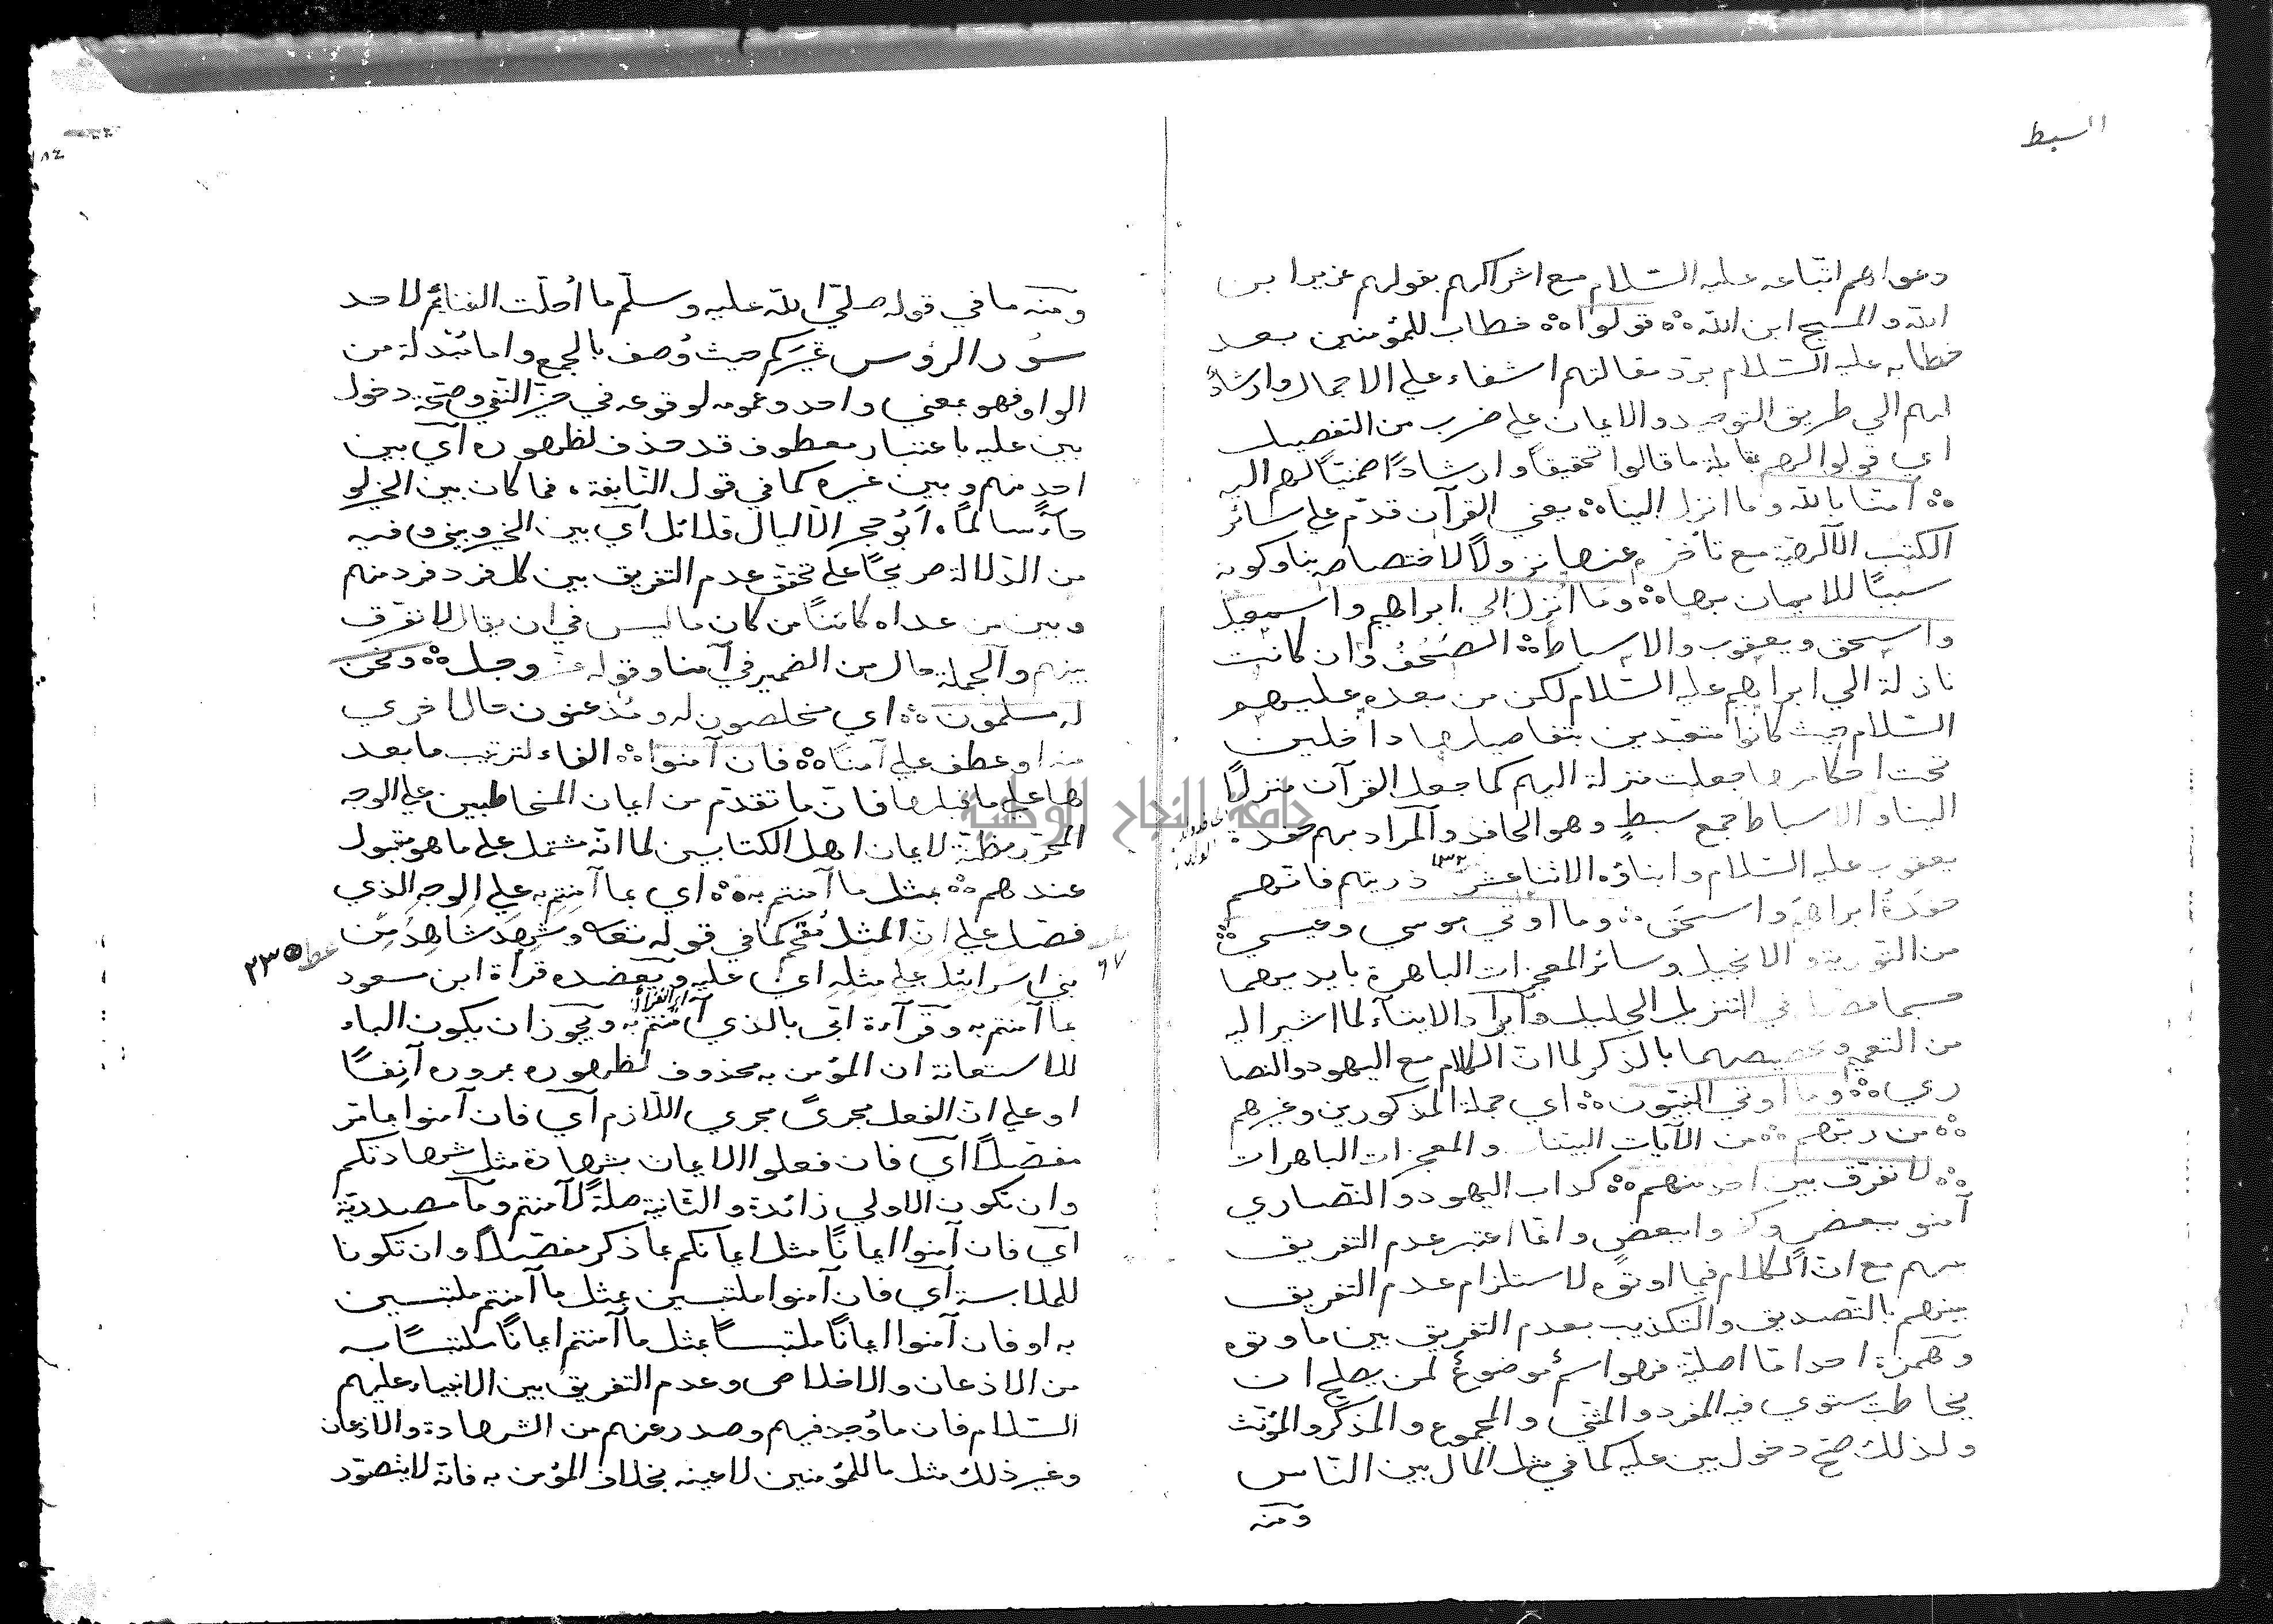 السبط
دعواهم اتباعه عليه السّلام مع اشراكهم بقولهم عزير ابن
الله والمسيح ابن الله ۃ قولوا ۃ خطاب للمؤمنين بعد
خطابه عليه السّلام بردّ مقالتهم الشنعاء علي الاجمال وارشادٌ
لهم الي طريق التوحيد والايمان علي ضرب من التفصيل
اي قولوا لهم بمقابلة ما قالوا تحقيقاً وارشادًا ضمنيًا لهم اليه
ۃ آمنّا بالله وما انزل الينا ۃ يعني القرآن قدّم علي سائر
الكتب الآلهية مع تأخّره عنها نزولاً لاختصاصه بنا وكونه
سببًا للايمان بها ۃ وما اُنزل الي ابراهيم واسمعيل
واسحق ويعقوب والاسباط ۃ الصُحُفُ وان كانت
نازلة الي ابراهيم عليه السّلام لكن من بعده عليهم
السّلام حيث كانوا متعبّدين بتفاصيلها داخلين
تحت احكامها جعلت منزلة اليهم كما جعل القرآن منزلاً
الينا والاسباط جمع سبطٍ وهو الحافد والمراد بهم حفدة
يعقوب عليه السّلام وابناؤه الاثنا عشر وذريتهم فانّهم
حَفَدَةُ ابراهيم واسحَق ۃ وما اُوتي موسي وعيسي ۃ
من التّورية والانجيل وسائر المعجزات الباهرة بايديهما
حسبما فصّل في التنزيل الجليل وآيراد الايتآء لما اشير اليه
من التعميم وتخصيصهما بالذكر لما انّ الكلام مع اليهود والنصا
ري ۃ وما اوتي النبيّون ۃ اي جملة المذكورين وغيرهم
ۃ من ربّهم ۃ من الآيات البيّنات والمعجزات الباهرات
ۃ لا نفرّق بين احد منهم ۃ كداب اليهود والنّصاري
آمنو ببعض وكفروا ببعضٍ وانّما اعتبر عدم التفريق
بينهم مع انّ الكلام فيما اوتوه لاستلزام عدم التفريق
بينهم بالتّصديق والتكذيب بعدم التفريق بين ما اوتوه
وهمزة احد امّا اصليّة فهو اسمٌ موضوعٌ لمن يصلح ان
يخاطب يستوي فيه المفرد والمثنّي والمجموع والمذكّر والمؤنّث
ولذلك صحّ دخول بين عليه كما في مثل المال بين النّاس
ومنه
ومنه ما في قوله صلّي الله عليه وسلّم ما اُحلّت الغنائم لاحد
سُود الرؤس غيركم حيث وُصف بالجمع واما مُبْدلة من
الواو فهو بمعني واحد وعمومه لوقوعه في حيّز النّفي وصحّة دخول
بين عليه باعتبار معطوف قد حذف لظهوره آي بين
احدٍ منهم وبين غيره كما في قول النّابغة، فما كان بين الخير لو
جآء سالماً، اَبُو حجر الاّ ليال قلائل آي بين الخير وبيني وفيه
من الدّلالة صريحًا علي تحقق عدم التفريق بين كل فرد فرد منهم
وبين من عداه كائنًا من كان ما ليس في ان يقال لا نفرّق
بينهم والجملة حال من الضمير في آمنا وقوله عزّ وجل ۃ ونحن
له مسلمون ۃ اي مخلصون له ومُذعنون حال اخري
منه او عطف علي آمنّا ۃ فان آمنوا ۃ الفاء لترتيب ما بعد
ها علي ما قبلها فانّ ما تقدّم من ايمان المخاطبين علي الوجه
المحرّر مظنّة لايمان اهل الكتابين لما انّه مشتمل علي ما هو مقبول
عندهم ۃ بمثل ما آمنتم به ۃ اي بما آمَنتم به علي الوجه الّذي
فصّل علي انّ المثل مُقحم كما في قوله تعه وشَهِدَ شَاهِدٌ مّنِ
بني اِسرائيل علي مثلِهِ اي عليه ويَعضده قرأة ابن مسعود
بما آمنتم به وقرآءة ابّي بالذي آمنتم به ويجوز ان يكون الباء
للاستعانة ان المؤمن به محذوف لظهوره بمروره آنِفًا
او علي انّ الفعل مجريً مجري اللاّزم آي فان آمنوا بما مرّ
مفصّلاً آي فان فعلوا الايمان بشهادة مثل شهادتكم
وان تكون الاولي زائدة والثّانية صلةً لآمنتم وما مصدريّة
آي فان آمنوا ايمانًا مثل ايمانكم بما ذكر مفصّلاً وان تكونا
للملابسة آي فان آمنوا ملتبسين بمثل ما آمنتم ملتبسين
به او فان آمنوا ايمانًا ملتبسًا بمثل ما آمنتم ايمانًا ملتبسًا به
من الاذعان والاخلاص وعدم التفريق بين الانبياء عليهم
السّلام فان ما وُجد فيهم وصدر عنهم من الشهادة والاذعان
وغير ذلك مثل ما للمؤمنين لا عينه بخلاف المؤمن به فانّه لا يتصوّر
جامعة النجاح الوطنية